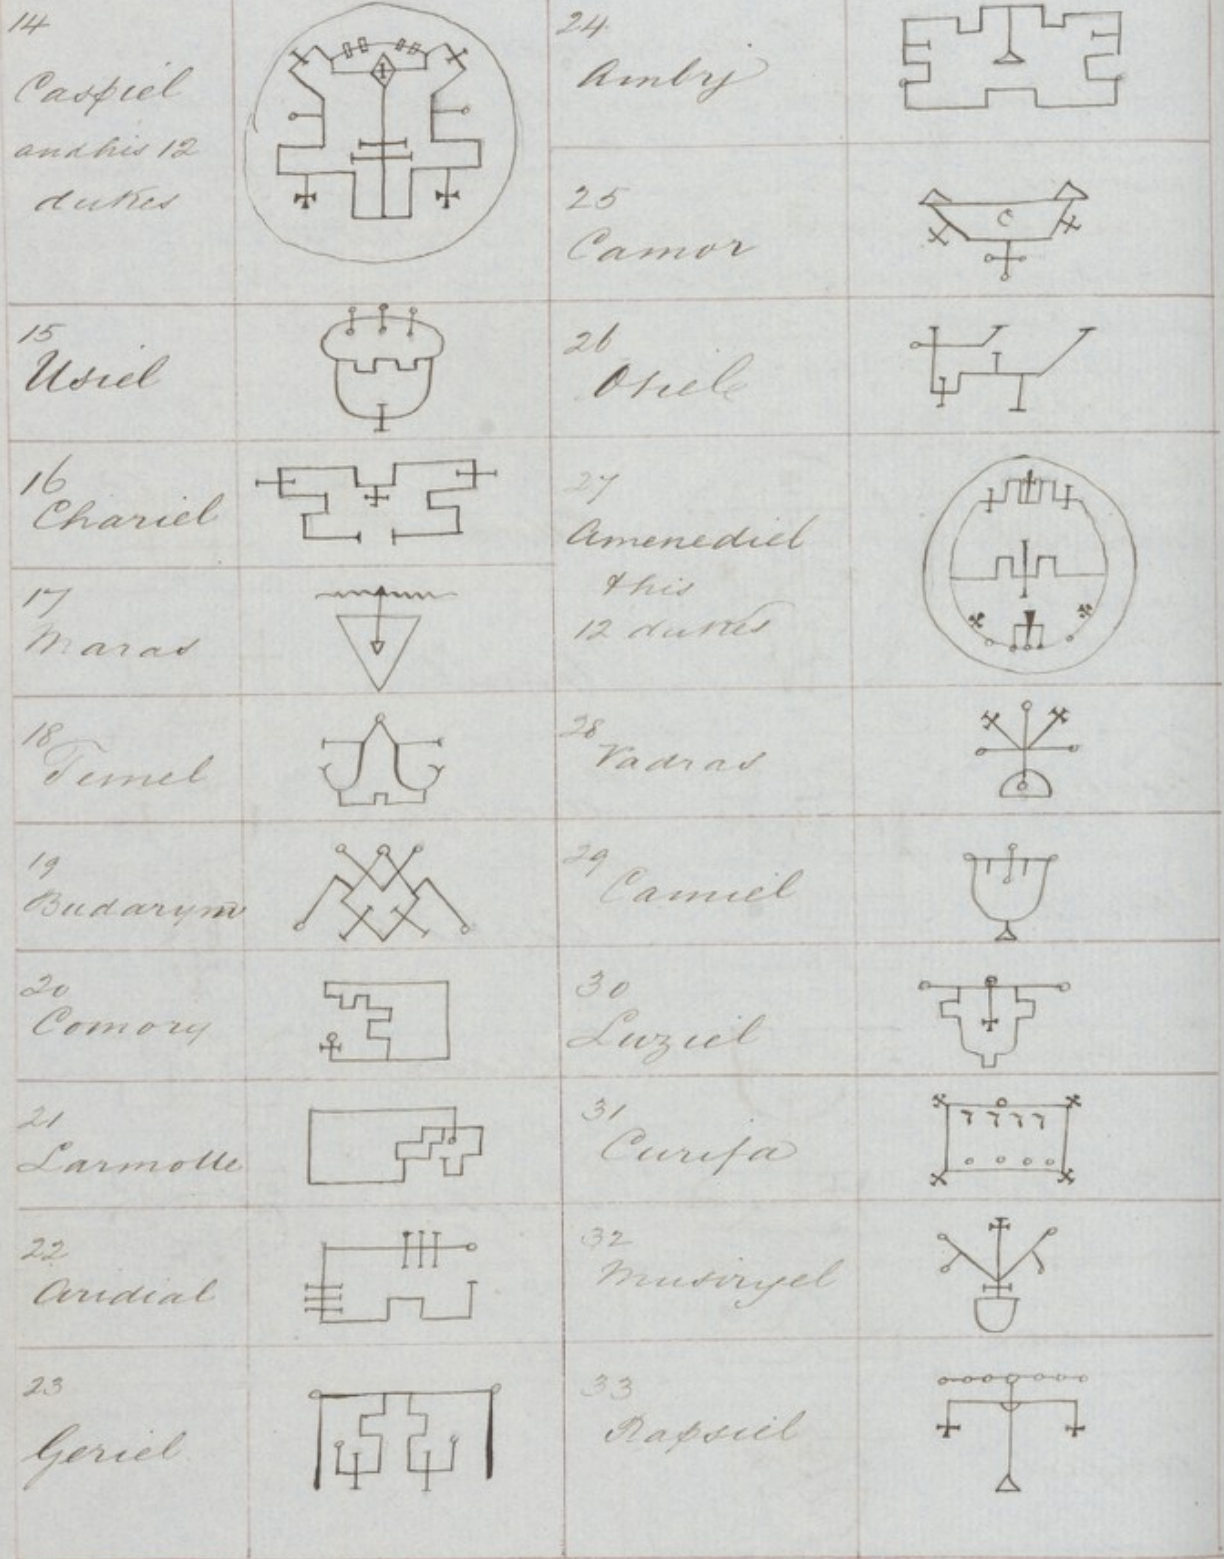 14
Caspiel
and his 12
dukes
15
Usiel
16
Chariel
17
Maras
18
Temel
19
Budarym
20
Comory
21
Larmolle
22
Aridial
23
Geriel
24
Ambrj
25
Camor
C
26
Otiel
27
Amenediel
& his
12 dukes
28
Vadras
29
Camiel
30
Luziel
31
Curifa
32
Musiryel
33
Rapsiel